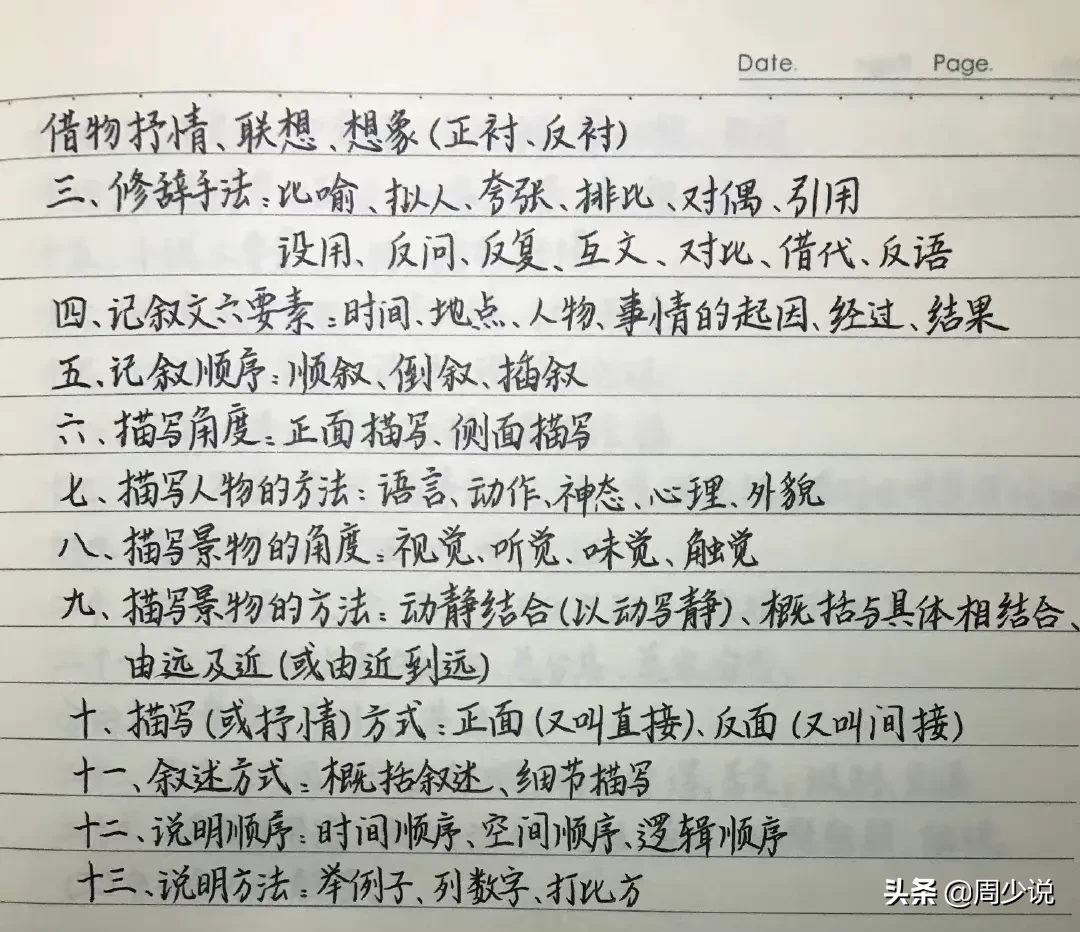 Date. Page.
借物抒情、联想、想象(正衬、反衬)
三、修辞手法:比喻、拟人、夸张、排比、对偶、引用
设用、反问、反复、互文、对比、借代、反语
四、记叙文六要素:时间、地点、人物、事情的起因、经过、结果
五、记叙顺序:顺叙、倒叙、插叙
六、描写角度:正面描写、侧面描写
七、描写人物的方法:语言、动作、神态、心理、外貌
八、描写景物的角度:视觉、听觉、味觉、触觉
九、描写景物的方法:动静结合(以动写静)、概括与具体相结合、
由远及近(或由近到远)
十、描写(或抒情)方式:正面(又叫直接)、反面(又叫间接)
十一、叙述方式:概括叙述、细节描写
十二、说明顺序:时间顺序、空间顺序、逻辑顺序
十三、说明方法:举例子、列数字、打比方
头条 @周少说